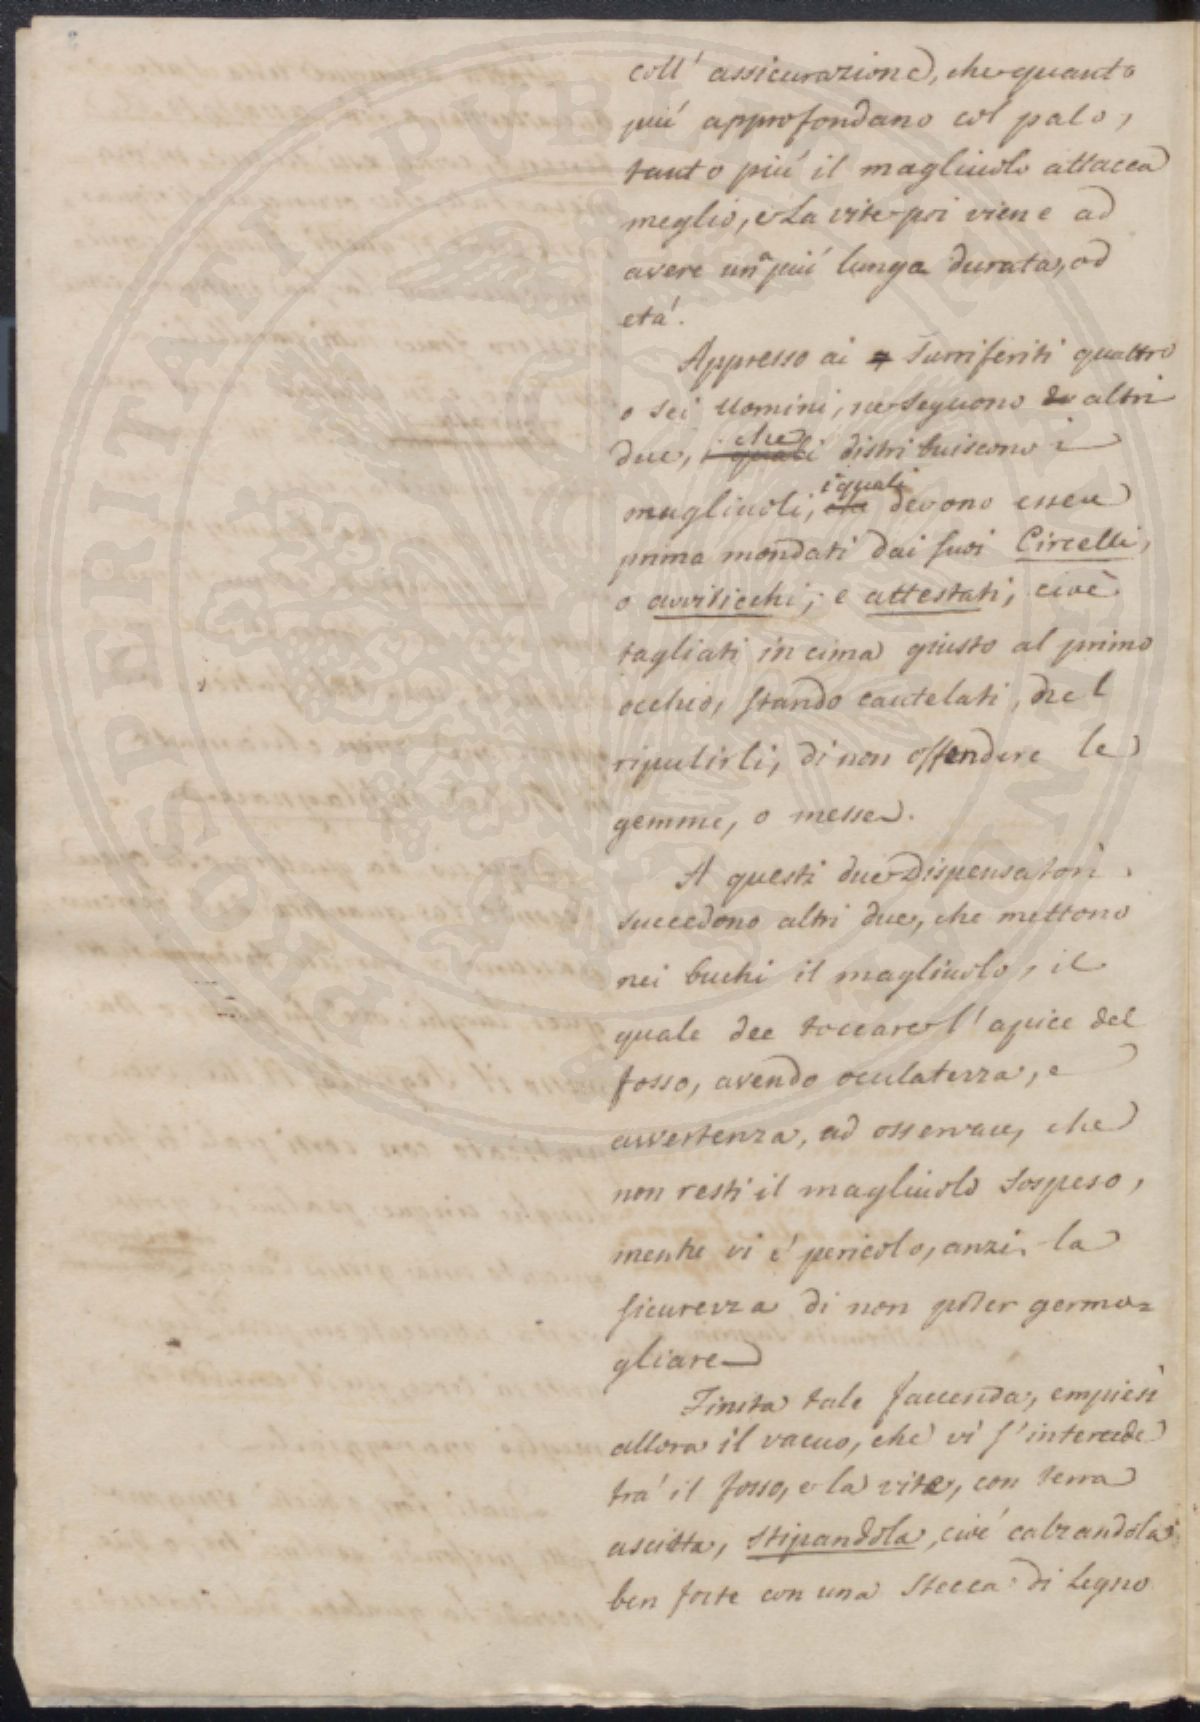 coll' assicurazione, che quanto
più approfondano col palo,
tanto più il magliuolo attacca
meglio, e la vite poi viene ad
avere una più lunga durata, od
età.
Appresso ai 4 surriferiti quattro
o sei uomini, ne seguono du altri
due, i quali che distribuiscono i
magliuoli, che i quali devono essere
prima mondati dai suoi Circelli,
o avviticchi, e attestati, cioè
tagliati in cima giusto al primo
occhio, stando cautelati, nel
ripulirli, di non offendere le
gemme, o messe.
A questi due Dispensatori
succedono altri due, che mettono
nei buchi il magliuolo, il
quale dee toccare l'apice del
fosso, avendo oculatezza, e
avvertenza, ad osservare, che
non resti il magliuolo sospeso,
mentre vi è pericolo, anzi la
sicurezza di non poter germo=
gliare
Finita tale faccenda, empiesi
allora il vacuo, che vi s'intercede
trà il fosso, e la vite, con terra
asciutta, stipandola, cioè calzandola
ben forte con una stecca di legno
HOSPERITATI PVBLICAE